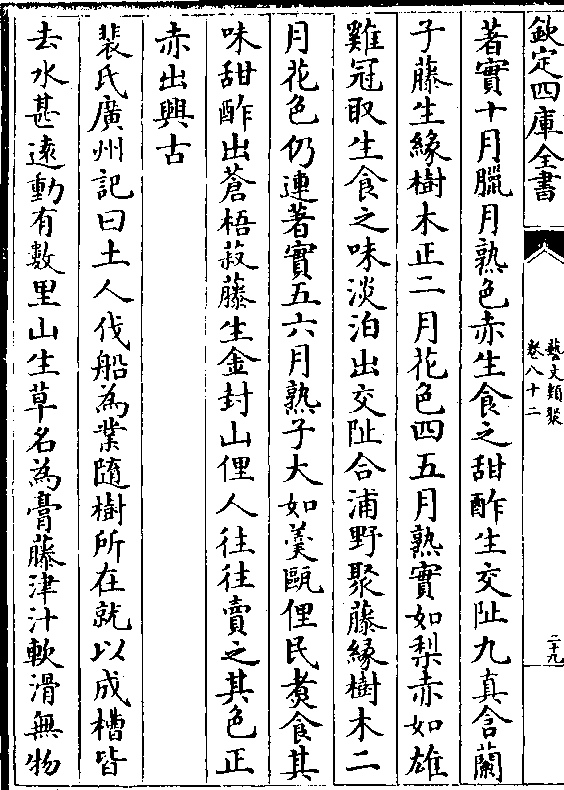 欽定四庫全書
藝文類聚
卷八十二
二十九
著實十月臘月熟色赤生食之甜酢生交阯九真含蘭
子藤生緣樹木正二月花色四五月熟實如梨赤如雄
雞冠取生食之味淡泊出交阯合浦野聚藤緣樹木二
月花色仍連著實五六月熟子大如羹甌俚民煮食其
味甜酢出蒼梧菽藤生金封山俚人往往賣之其色正
赤出興古
裴氏廣州記曰土人伐船為業隨樹所在就以成槽皆
去水甚遠動有數里山生草名為膏藤津汁軟滑無物